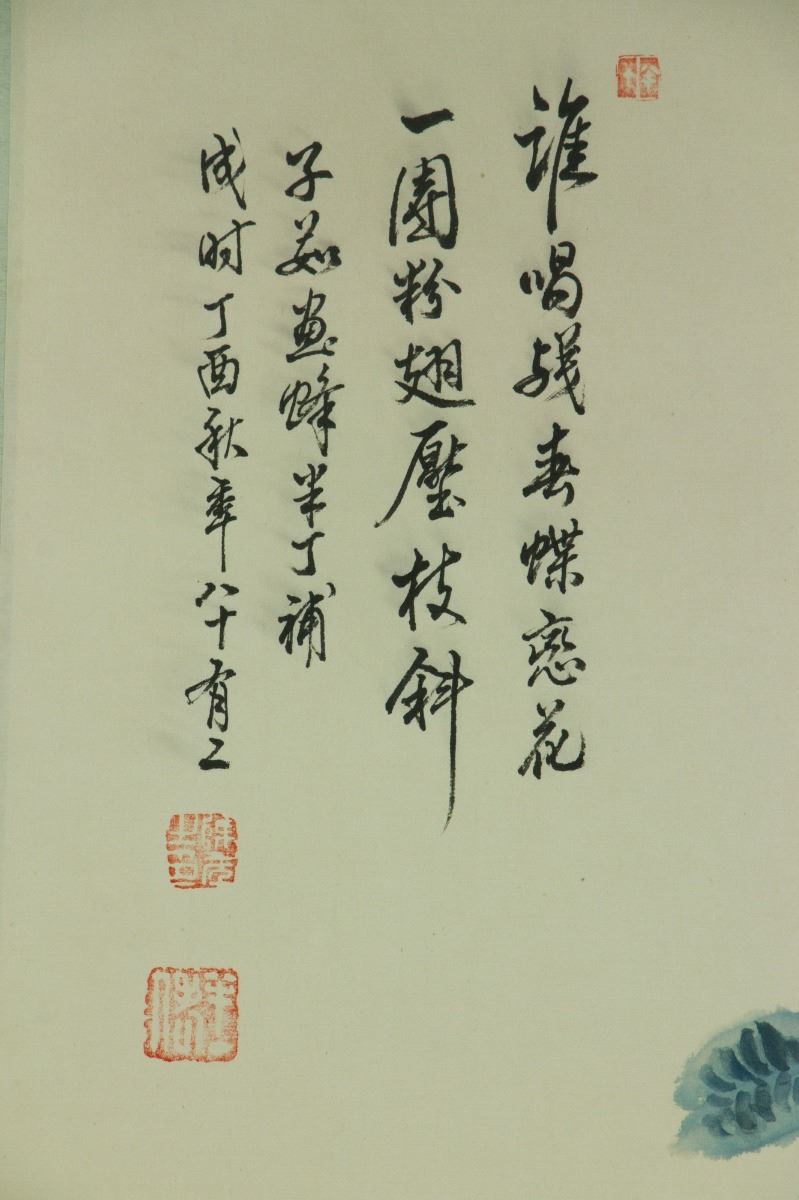 谁唱残春蝶恋花
一團粉翅壓枝斜
子茹畫蜂半丁補
成时丁酉秋季八十有二